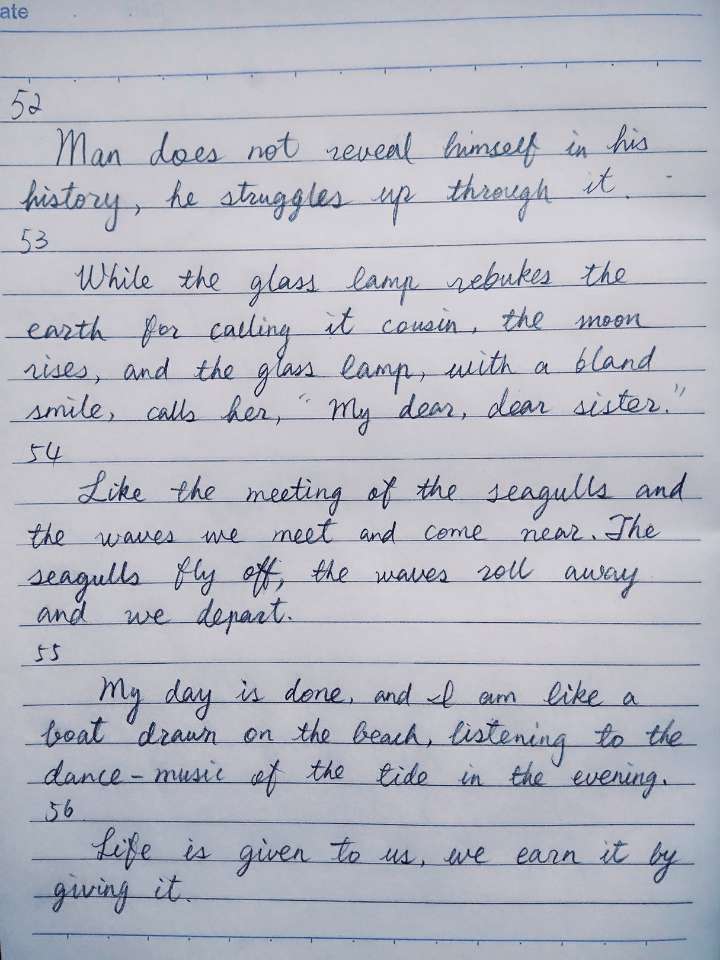 ate
52
Man does not reveal himself in his
history, he struggles up through it.
53
While the glass lamp rebukes the
earth for calling it cousin, the moon
rises, and the glass lamp, with a bland
smile, calls her, "My dear, dear sister."
54
Like the meeting of the seagulls and
the waves we meet and come near. The
seagulls fly off, the waves roll away
and we depart.
55
My day is done, and I am like a
boat drawn on the beach, listening to the
dance-music of the tide in the evening.
56
Life is given to us, we earn it by
giving it.